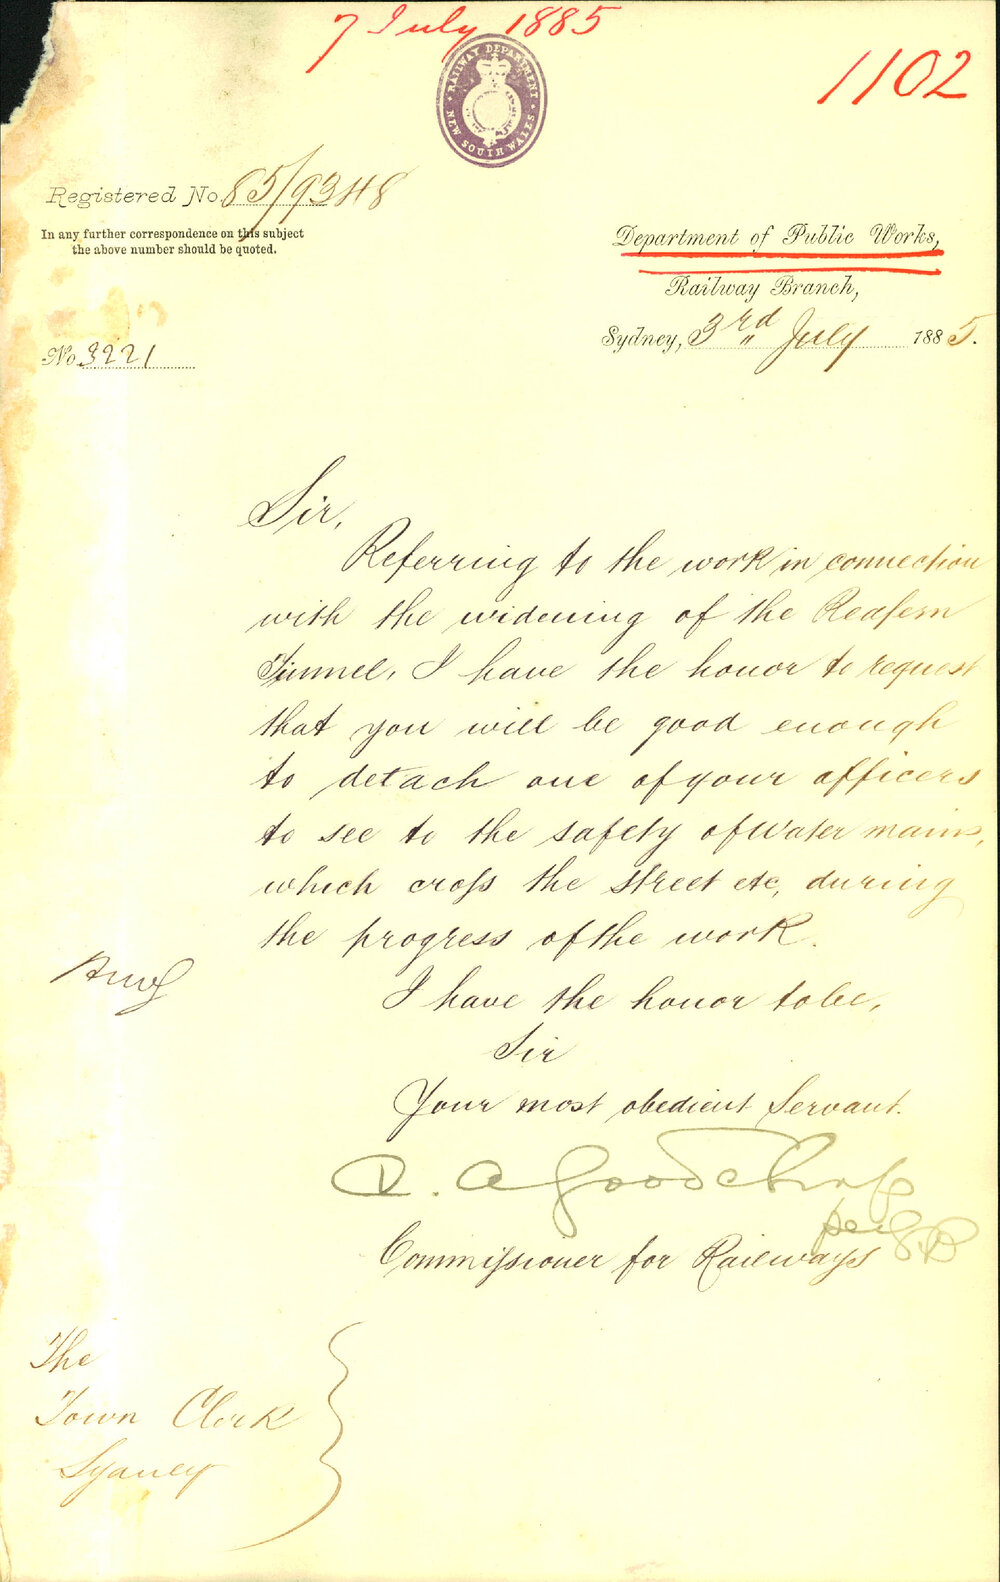 7 July 1885
1102
RAILWAY DEPARTMENT
NEW SOUTH WALES
Registered No. 85/9348
In any further correspondence on this subject
the above number should be quoted.
Department of Public Works,
Railway Branch,
Sydney, 3rd July 1885.
No. 3221
Sir,
Referring to the work in connection
with the widening of the Redfern
Tunnel, I have the honor to request
that you will be good enough
to detach one of your officers
to see to the safety of Water mains,
which cross the street etc, during
the progress of the work.
I have the honor to be,
Sir
Your most obedient Servant.
Commissioner for Railways
The
Town Clerk
Sydney